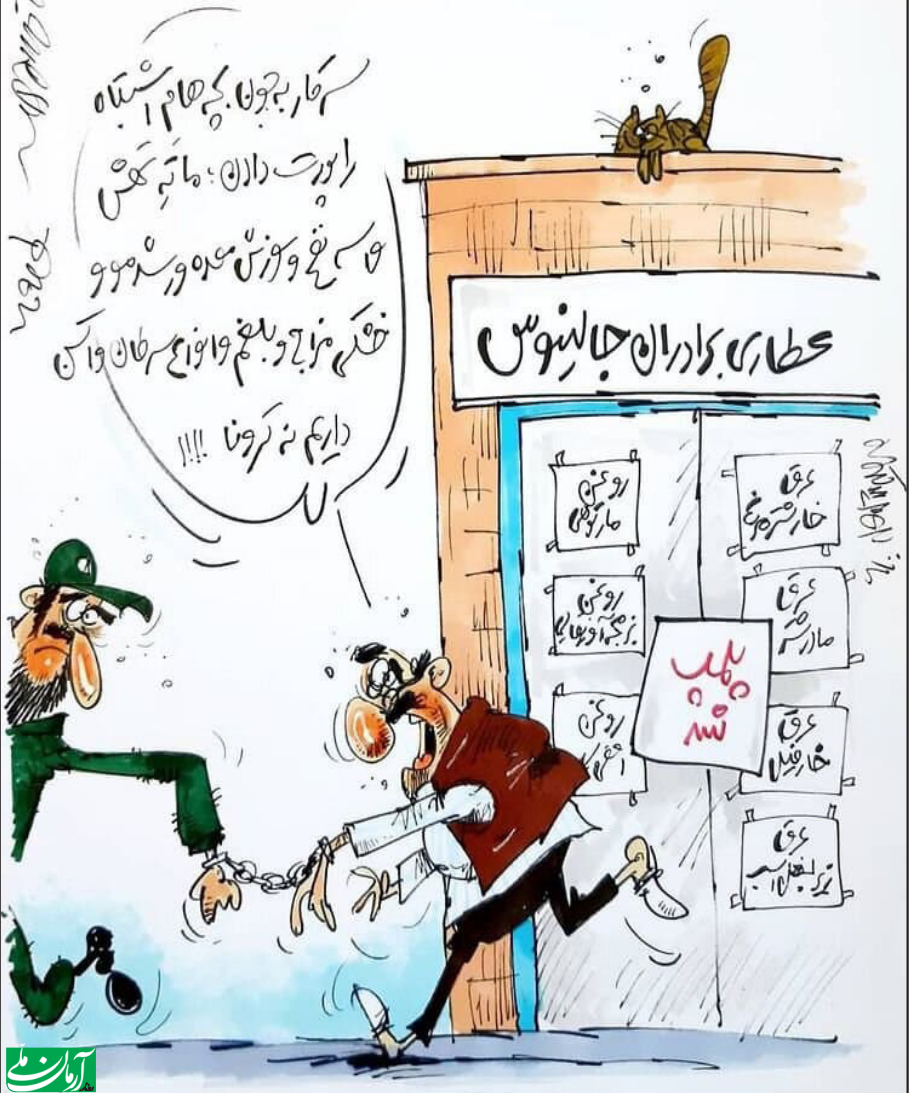 سرکار به جون بچه هام اشتباه
راپورت دادن؛ ما تَهِ تَهِش
واسه نفخ و سوزش معده و رشد مو و
خشکی مزاج و بلغم و انواع سرطان واکسن
داریم نه کرونا !!!!
عطاری برادران جالینوس
روغن
مارکوهی
روغن
بزمجه آفریقایی
روغن
عرق
خارشترمرغ
عرق
مادرشوهر
عرق
خارفیل
عرق
زیربغل اسب
پلمب
شد
آرمان ملی